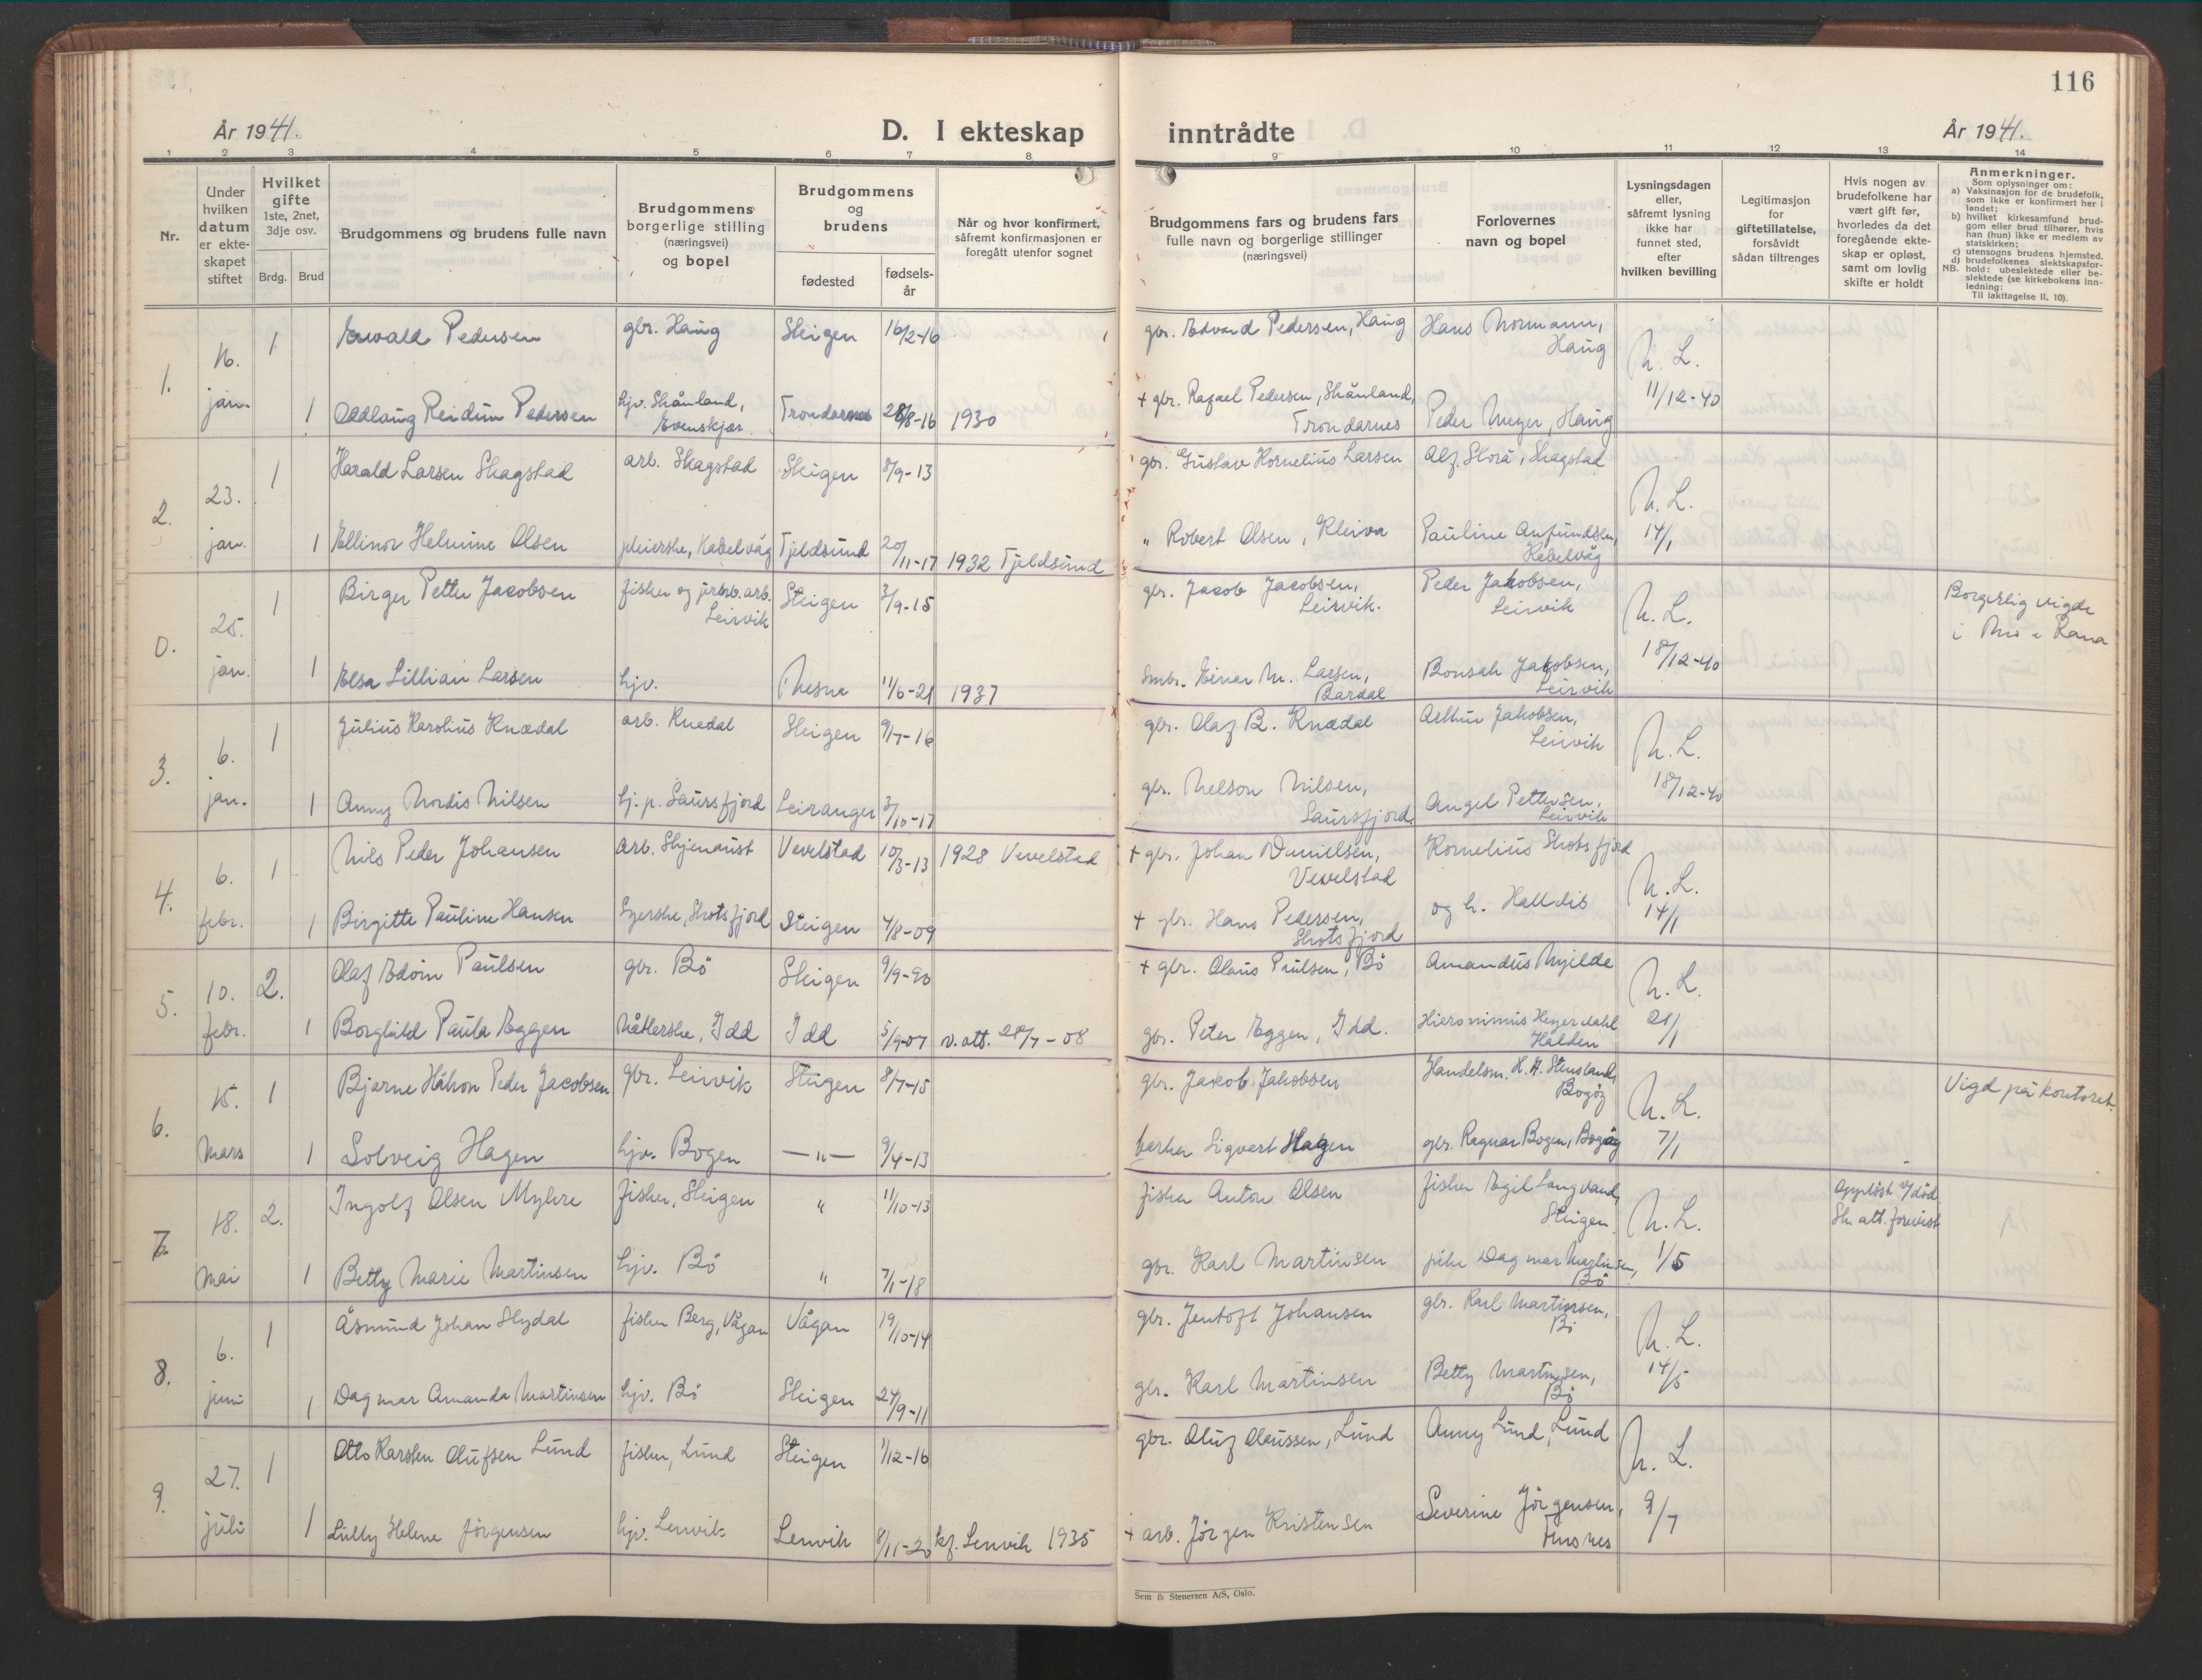 116
År 1941.
D. I ekteskap inntrådte
År 1941.
1 2 3 4 5 6 7 8 9 10 11 12 13 14
Nr.
Under hvilken datum er ekteskapet stiftet
Hvilket gifte 1ste, 2net, 3dje osv.
Brdg. Brud
Brudgommens og brudens fulle navn
Brudgommens borgerlige stilling (næringsvei) og bopel
Brudgommens og brudens
fødested
fødsels-år
Når og hvor konfirmert, såfremt konfirmasjonen er foregått utenfor sognet
Brudgommens fars og brudens fars fulle navn og borgerlige stillinger (næringsvei)
Forlovernes navn og bopel
Lysningsdagen eller, såfremt lysning ikke har funnet sted, efter hvilken bevilling
Legitimasjon for giftetillatelse, forsåvidt sådan tiltrenges
Hvis nogen av brudefolkene har vært gift før, hvorledes da det foregående ekteskap er opløst, samt om lovlig skifte er holdt
Anmerkninger.
Som oplysninger om:
a) Vaksinasjon for de brudefolk, som ikke er konfirmert her i landet;
b) hvilket kirkesamfund brudgom eller brud tilhører, hvis han (hun) ikke er medlem av statskirken;
c) utensogns brudens hjemsted.
d) brudefolkenes slektskapsforhold: ubeslektede eller beslektede (se kirkebokens innledning:
NB.
Til iakttagelse II, 10).
1. 16. jan. 1 Edvald Pedersen gbr. Haug Steigen 16/2-16 gbr. Edvard Pedersen, Haug Hans Normann, Haug N. L. 11/12-40
1 Oddlaug Reidun Pedersen hjv. Skånland, Evenskjær Trondarnes 28/8-16 1930 + gbr. Rafael Pedersen, Skånland, Trondarnes Peder Meyer, Haug
2. 23. jan. 1 Harald Larsen Skagstad arb. Skagstad Steigen 8/9-13 gbr. Gustav Kornelius Larsen Alf Slora, Skagstad N. L. 14/1
1 Ellinor Helmine Olsen pleierske, Kabelvåg Tjeldsund 20/11-17 1932 Tjeldsund " Robert Olsen, Kleiva Pauline Anfundsen, Kabelvåg
0. 25. jan. 1 Birger Petter Jacobsen fisker og jernb.arb. Leirvik Steigen 3/9-15 gbr. Jacob Jacobsen, Leirvik. Peder Jakobsen, Leirvik N. L. 18/12-40 Borgerlig vigde i Mo i Rana
1 Elsa Lillian Larsen hjv. Nesna 11/6-21 1937 Smbr. Einar M. Larsen, Bardal Bonsak Jakobsen, Leirvik
3. 6. jan. 1 Julius Karolius Knædal arb. Knedal Steigen 9/7-16 gbr. Olaf B. Knædal Arthur Jakobsen, Leirvik N. L. 18/12-40
1 Anny Nordis Nilsen hj. p. Saursfjord Leiranger 3/10-17 gbr. Nelson Nilsen, Saursfjord. Angel Pettersen, Leirvik
4. 6. febr. 1 Nils Peder Johansen arb. Skjenaust Vevelstad 10/3-13 1928 Vevelstad + gbr. Johan Danielsen, Vevelstad Kornelius Skotsfjord N. L. 14/1
1 Birgitte Pauline Hansen Syerske, Skotsfjord Steigen 4/8-09 + gbr. Hans Pedersen, Skotsfjord og h. Halldis
5. 10. febr. 2. Olaf Edvin Paulsen gbr. Bö Steigen 9/9-90 + gbr. Olaus Paulsen, Bö Amandus Myilde N. L. 21/1
1 Borghild Paula Eggen Nåtlerske, Idd Idd 5/9-07 v. att. 28/7-08 gbr. Peter Eggen, Idd. Hieronimus Heyerdahl Halden
6. 15. Mars 1 Bjarne Håkon Peder Jacobsen gbr. Leirvik Steigen 8/7-15 gbr. Jakob Jakobsen Handelsm. H. A. Stensland, Bogöy N. L. 7/1 Vigd på kontoret.
1 Solveig Hagen hjv. Bogen — " — 9/4-13 barber Sigvert Hagen gbr. Ragnar Bogen, Bogöy
7. 18. Mai 2. Ingolf Olsen Myhre fisker, Steigen " 11/10-13 fisker Anton Olsen fisker Egil Langvand, Steigen N. L. 1/5 Opplöst v/ död Sk. att. forevist
1 Betty Marie Martinsen hjv. Bö " 7/1-18 gbr. Karl Martinsen pike Dagmar Martinsen, Bö
8. 6. juni 1 Åsmund Johan Slydal fisker Berg, Vågan Vågan 19/10-14 gbr. Jentoft Johansen gbr. Karl Martinsen, Bö N. L. 14/5
1 Dagmar Amanda Martinsen hjv. Bö Steigen 24/9-11 gbr. Karl Martinsen Betty Martinsen, Bö
9. 27. juli 1 Otto Karsten Olufsen Lund fisker, Lund Steigen 1/12-16 gbr. Oluf Olaussen, Lund Anny Lund, Lund N. L. 9/7
1 Lully Helene Jörgensen hjv. Lenvik Lenvik 8/11-20 kf. Lenvik 1935 + arb. Jörgen Kristensen Severine Jörgensen, Husnes
Sem & Stenersen A/S, Oslo.